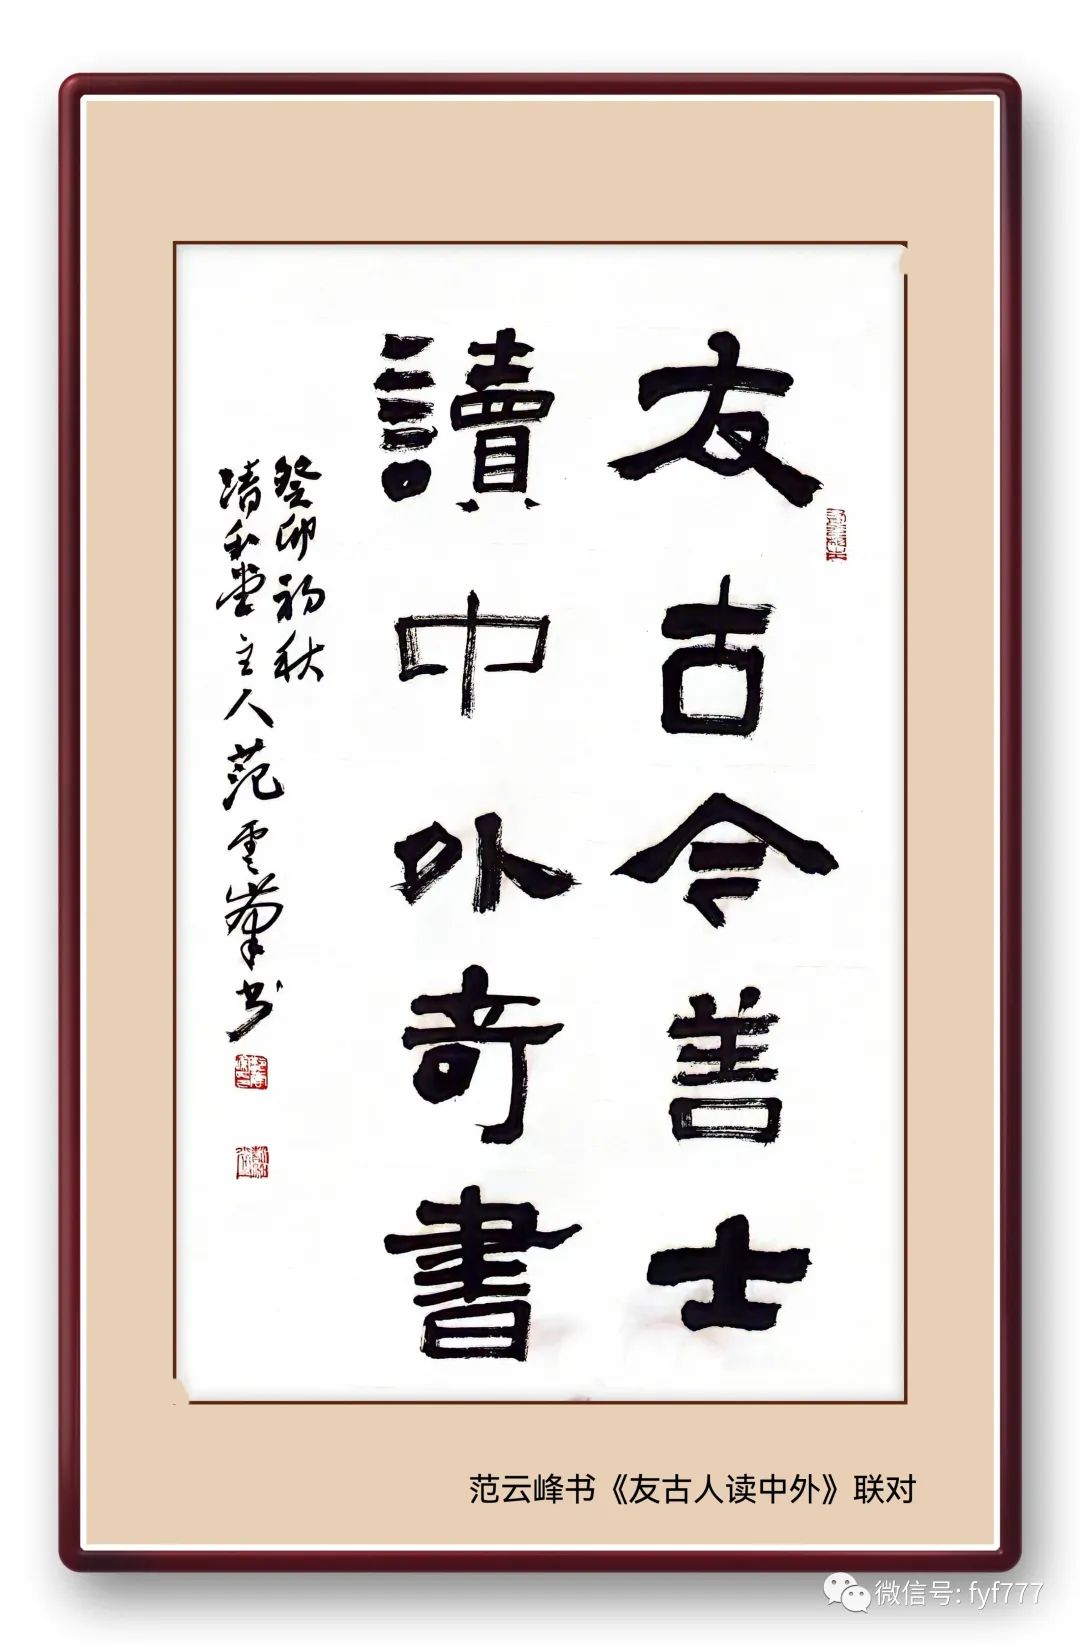 友古今善士
讀中外奇書
癸卯初秋
清和堂主人范雲峯书
范云峰书《友古人读中外》联对
微信号: fyf777